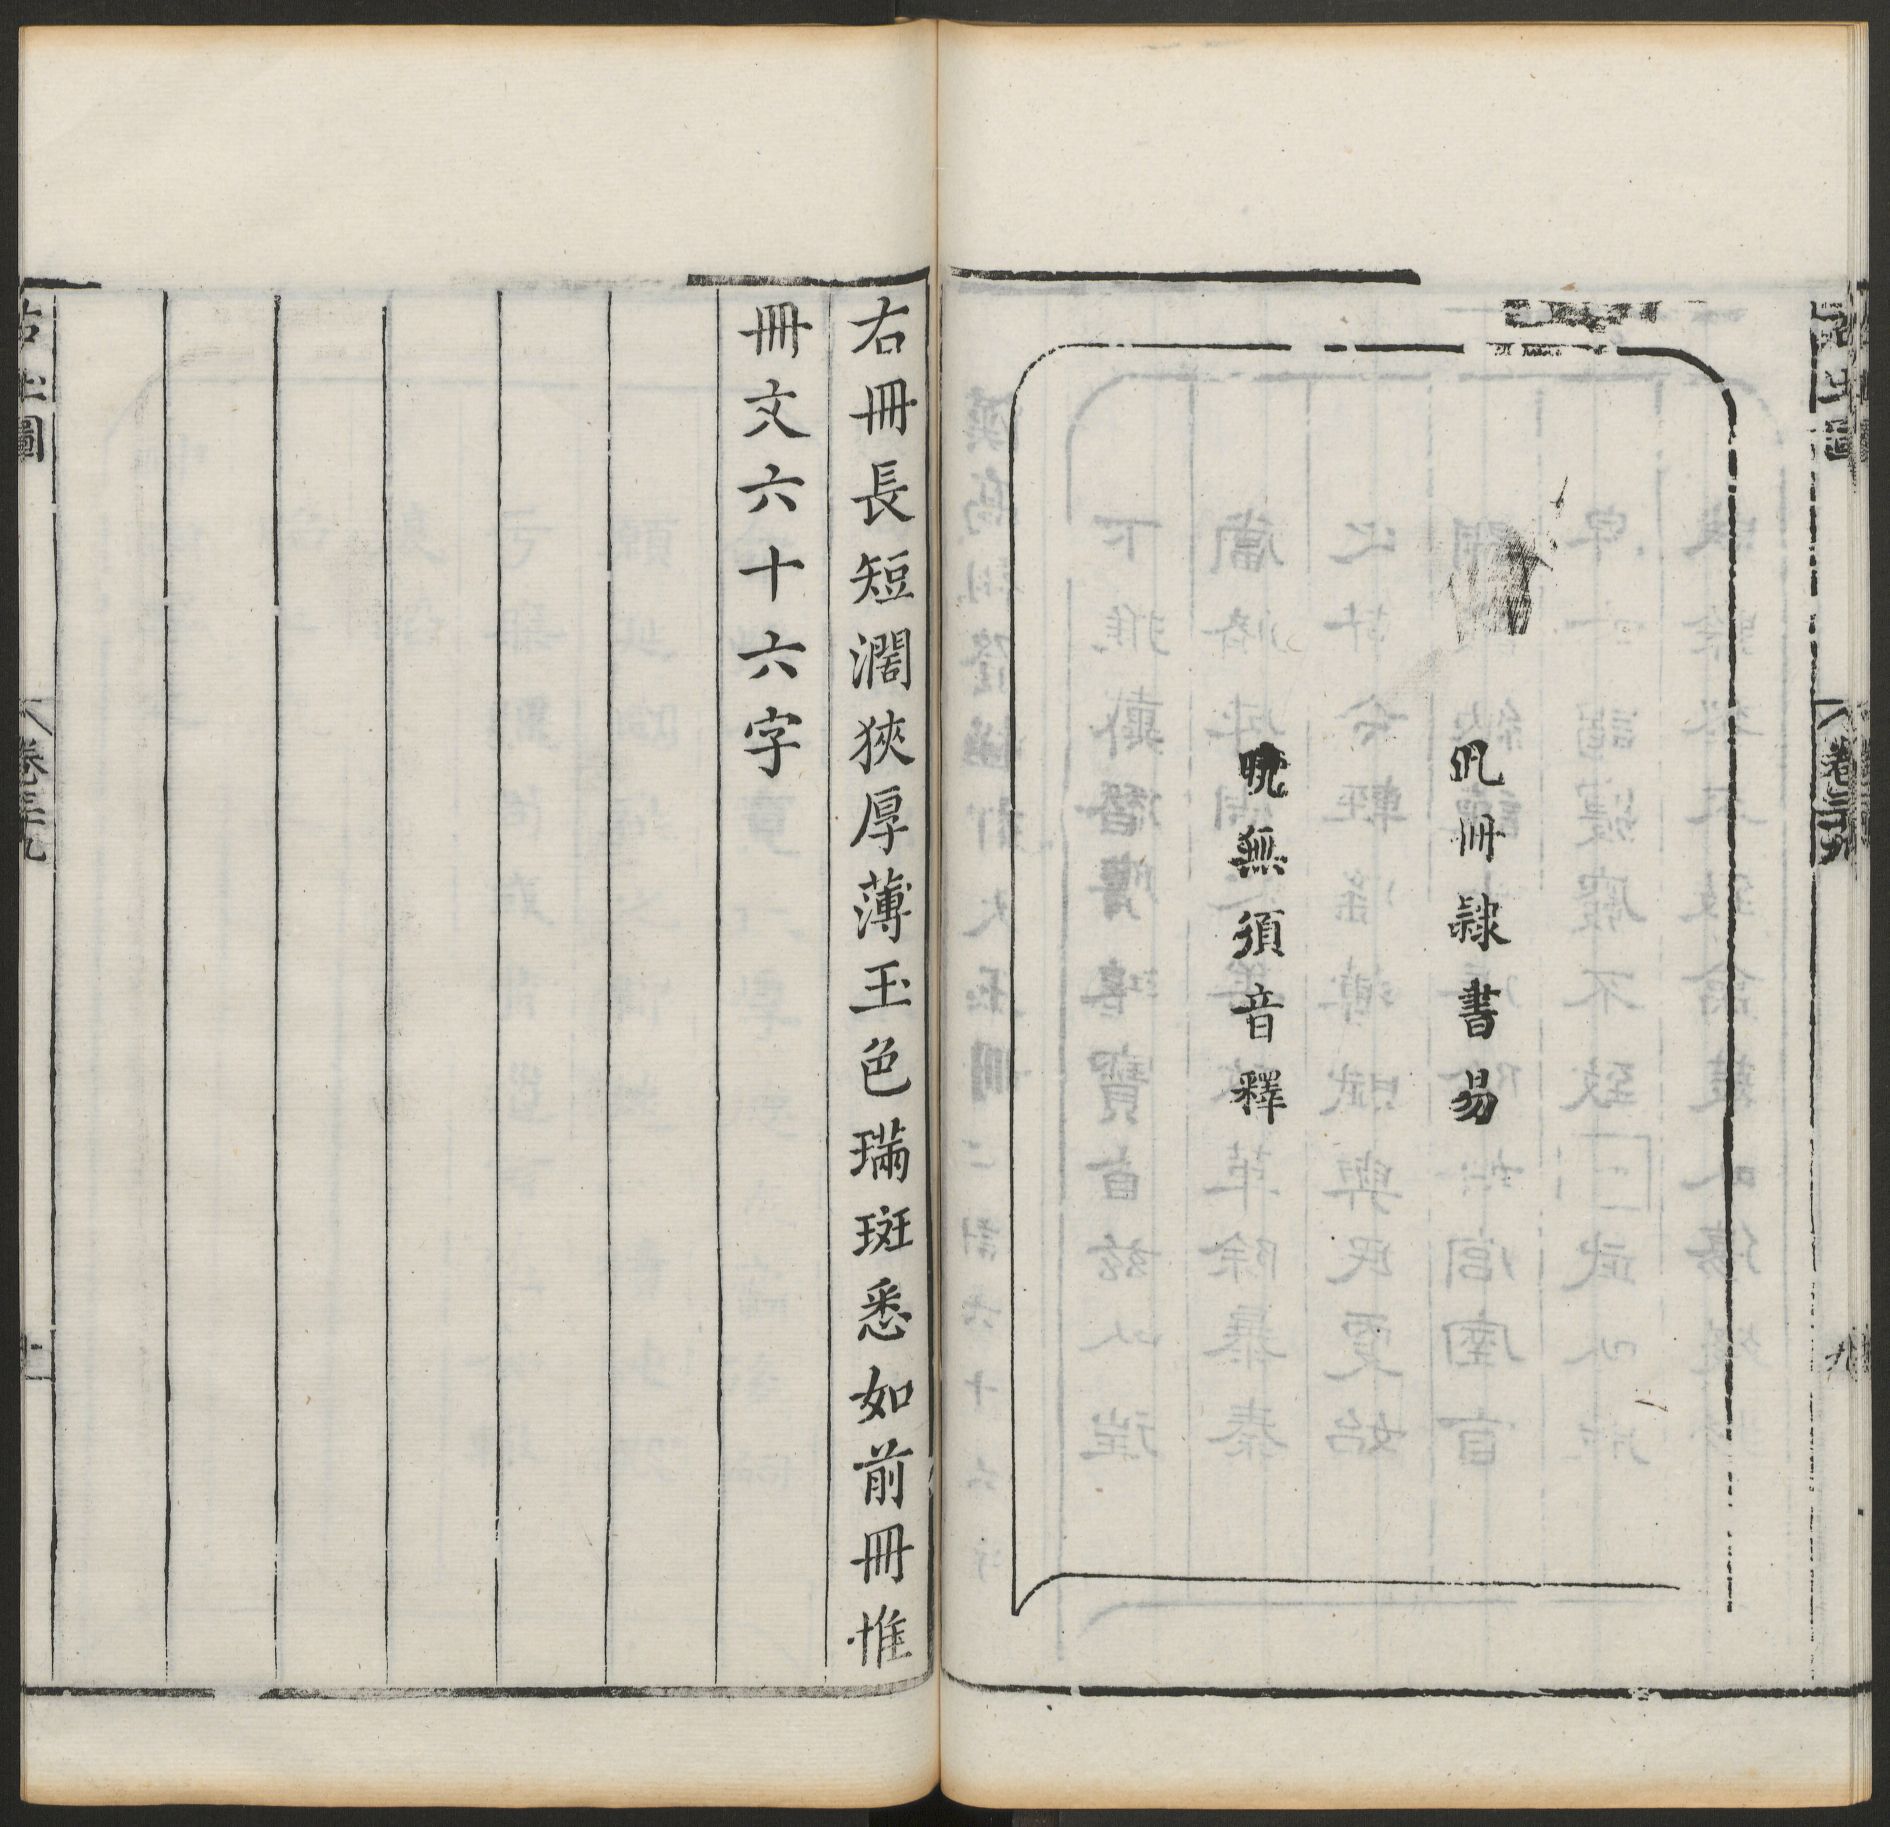 凡冊隸書易
曉無須音釋
右冊長短濶狹厚薄玉色璊斑悉如前冊惟
冊文六十六字
古玉圖
卷三十九